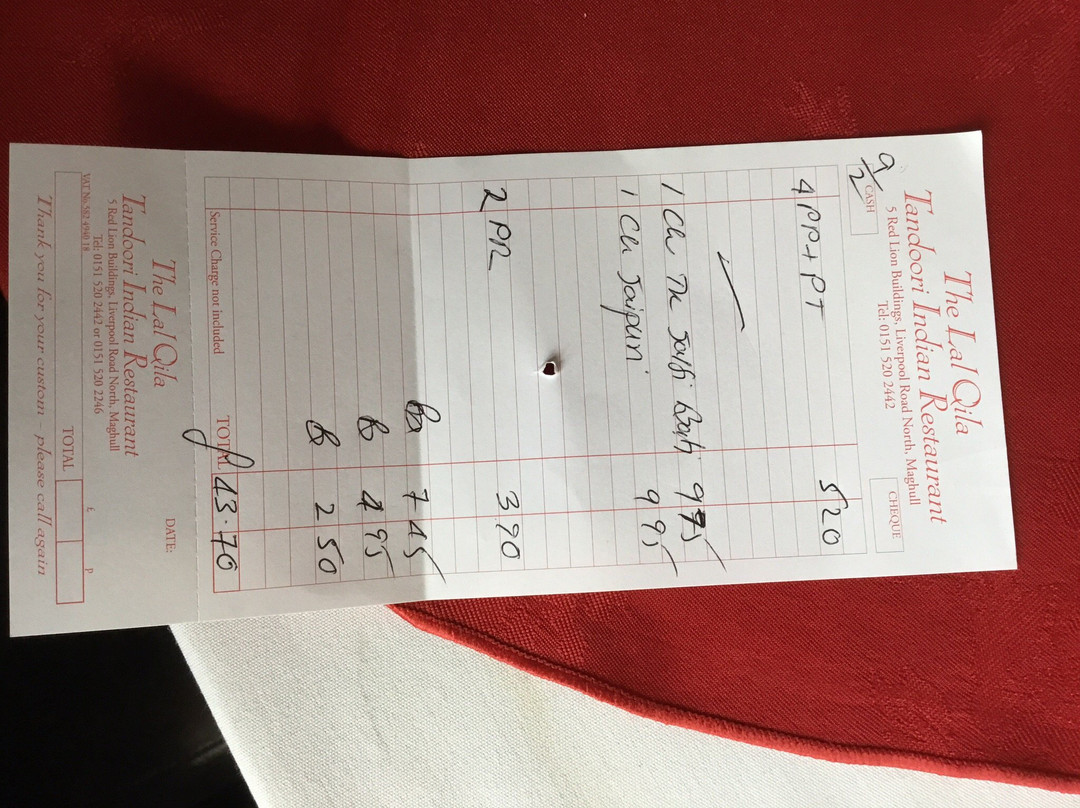 The Lal Qila
Tandoori Indian Restaurant
5 Red Lion Buildings, Liverpool Road North, Maghull
Tel: 0151 520 2442
9/2 CASH CHEQUE
4 PP + PT 5 20
1 Ch Tk Jalfi 9 95
1 Ch Jaipuri 9 95
2 PR 3 90
7 45
4 95
2 50
Service Charge not included TOTAL £ 43.70
The Lal Qila
Tandoori Indian Restaurant DATE:
5 Red Lion Buildings, Liverpool Road North, Maghull
Tel: 0151 520 2442 or 0151 520 2246
VAT No. 582 4940 18 TOTAL £ P
Thank you for your custom - please call again